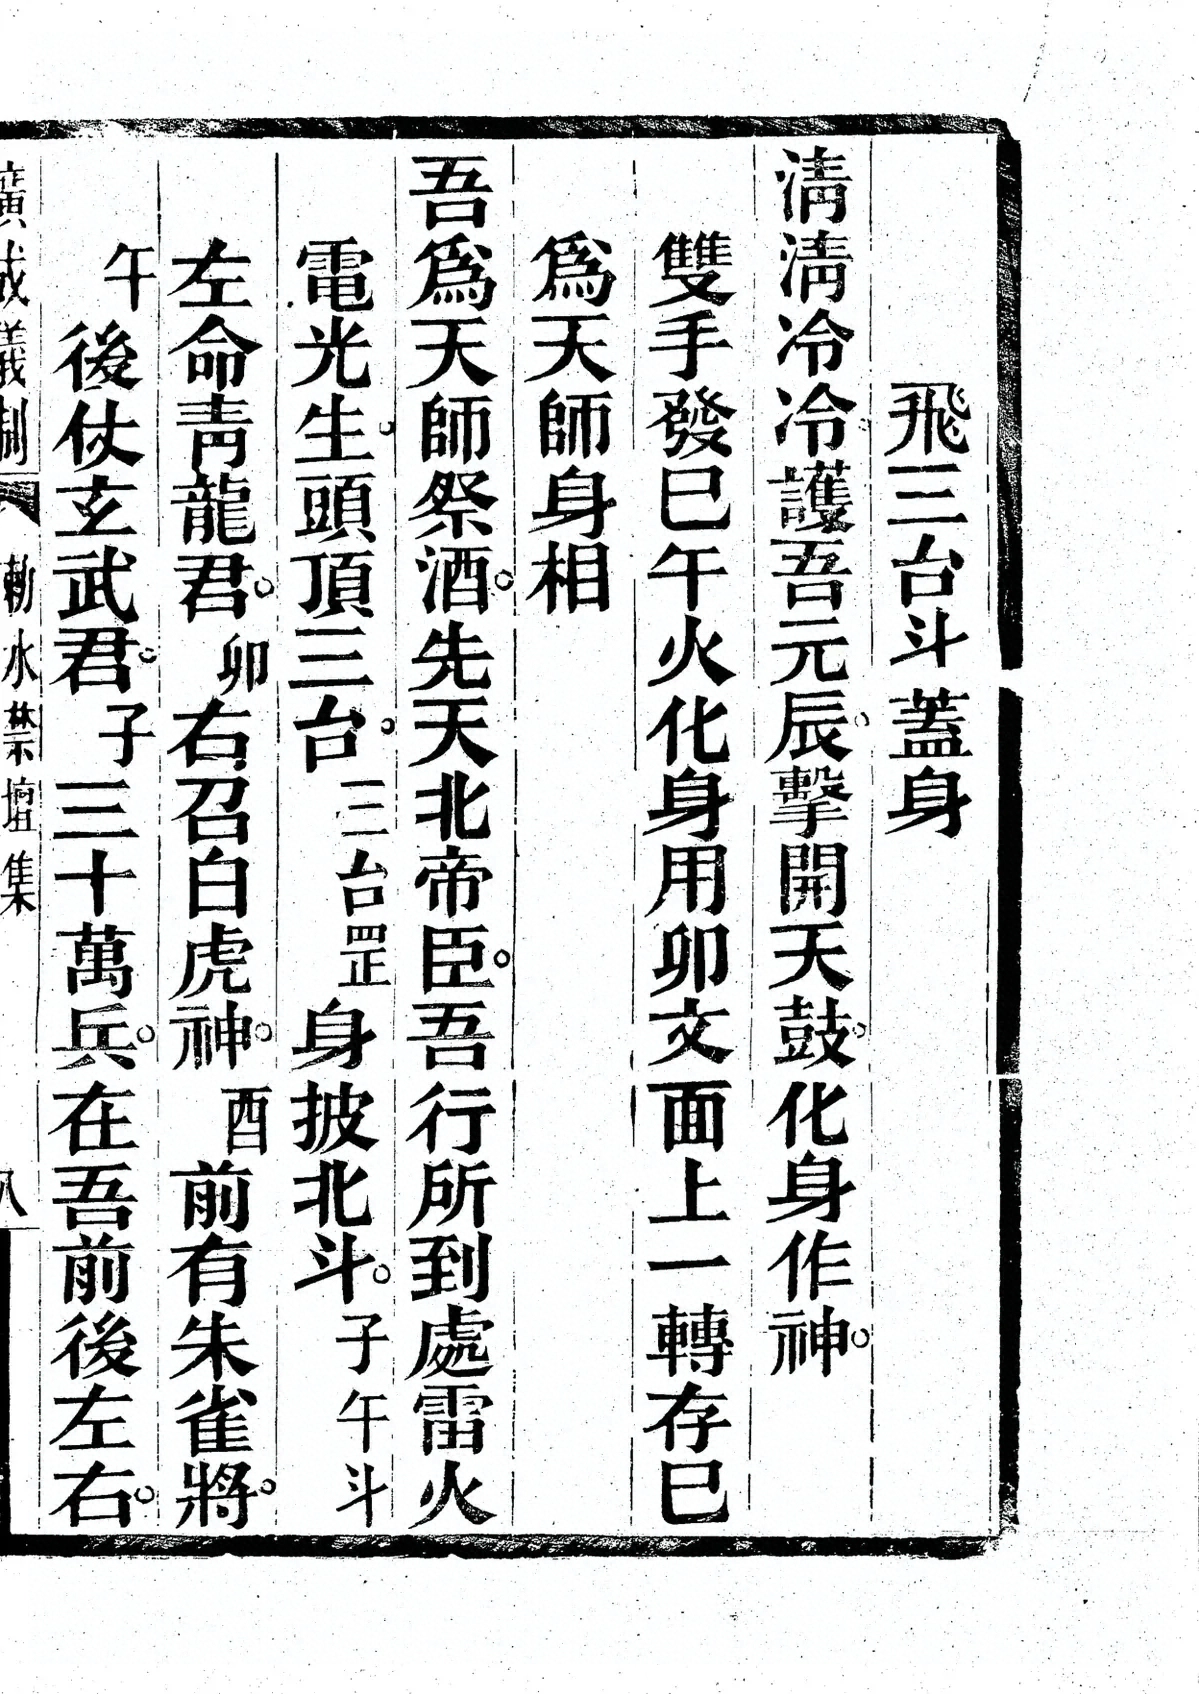 飛三台斗蓋身
淸淸冷冷護吾元辰。擊開天鼓。化身作神。
雙手發巳午火化身用卯文面上一轉存巳
爲天師身相
吾爲天師祭酒。先天北帝臣。吾行所到處雷火
電光生。頭頂三台。三台罡身披北斗。子午斗
左命靑龍君。卯右召白虎神。酉前有朱雀將。
午後仗玄武君。子三十萬兵。在吾前後左右。
廣成儀制 勅水禁壇集 八